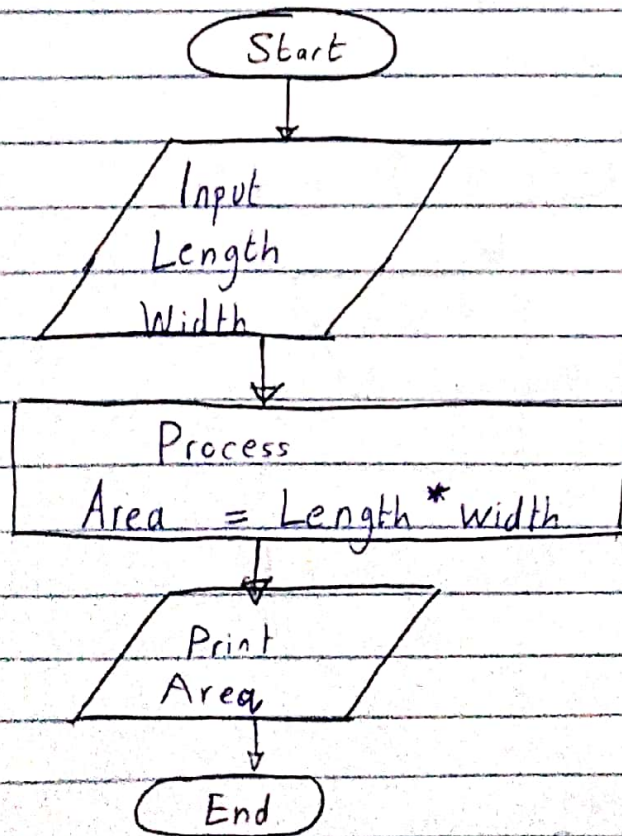 Start
Input
Length
Width
Process
Area = Length * width
Print
Area
End